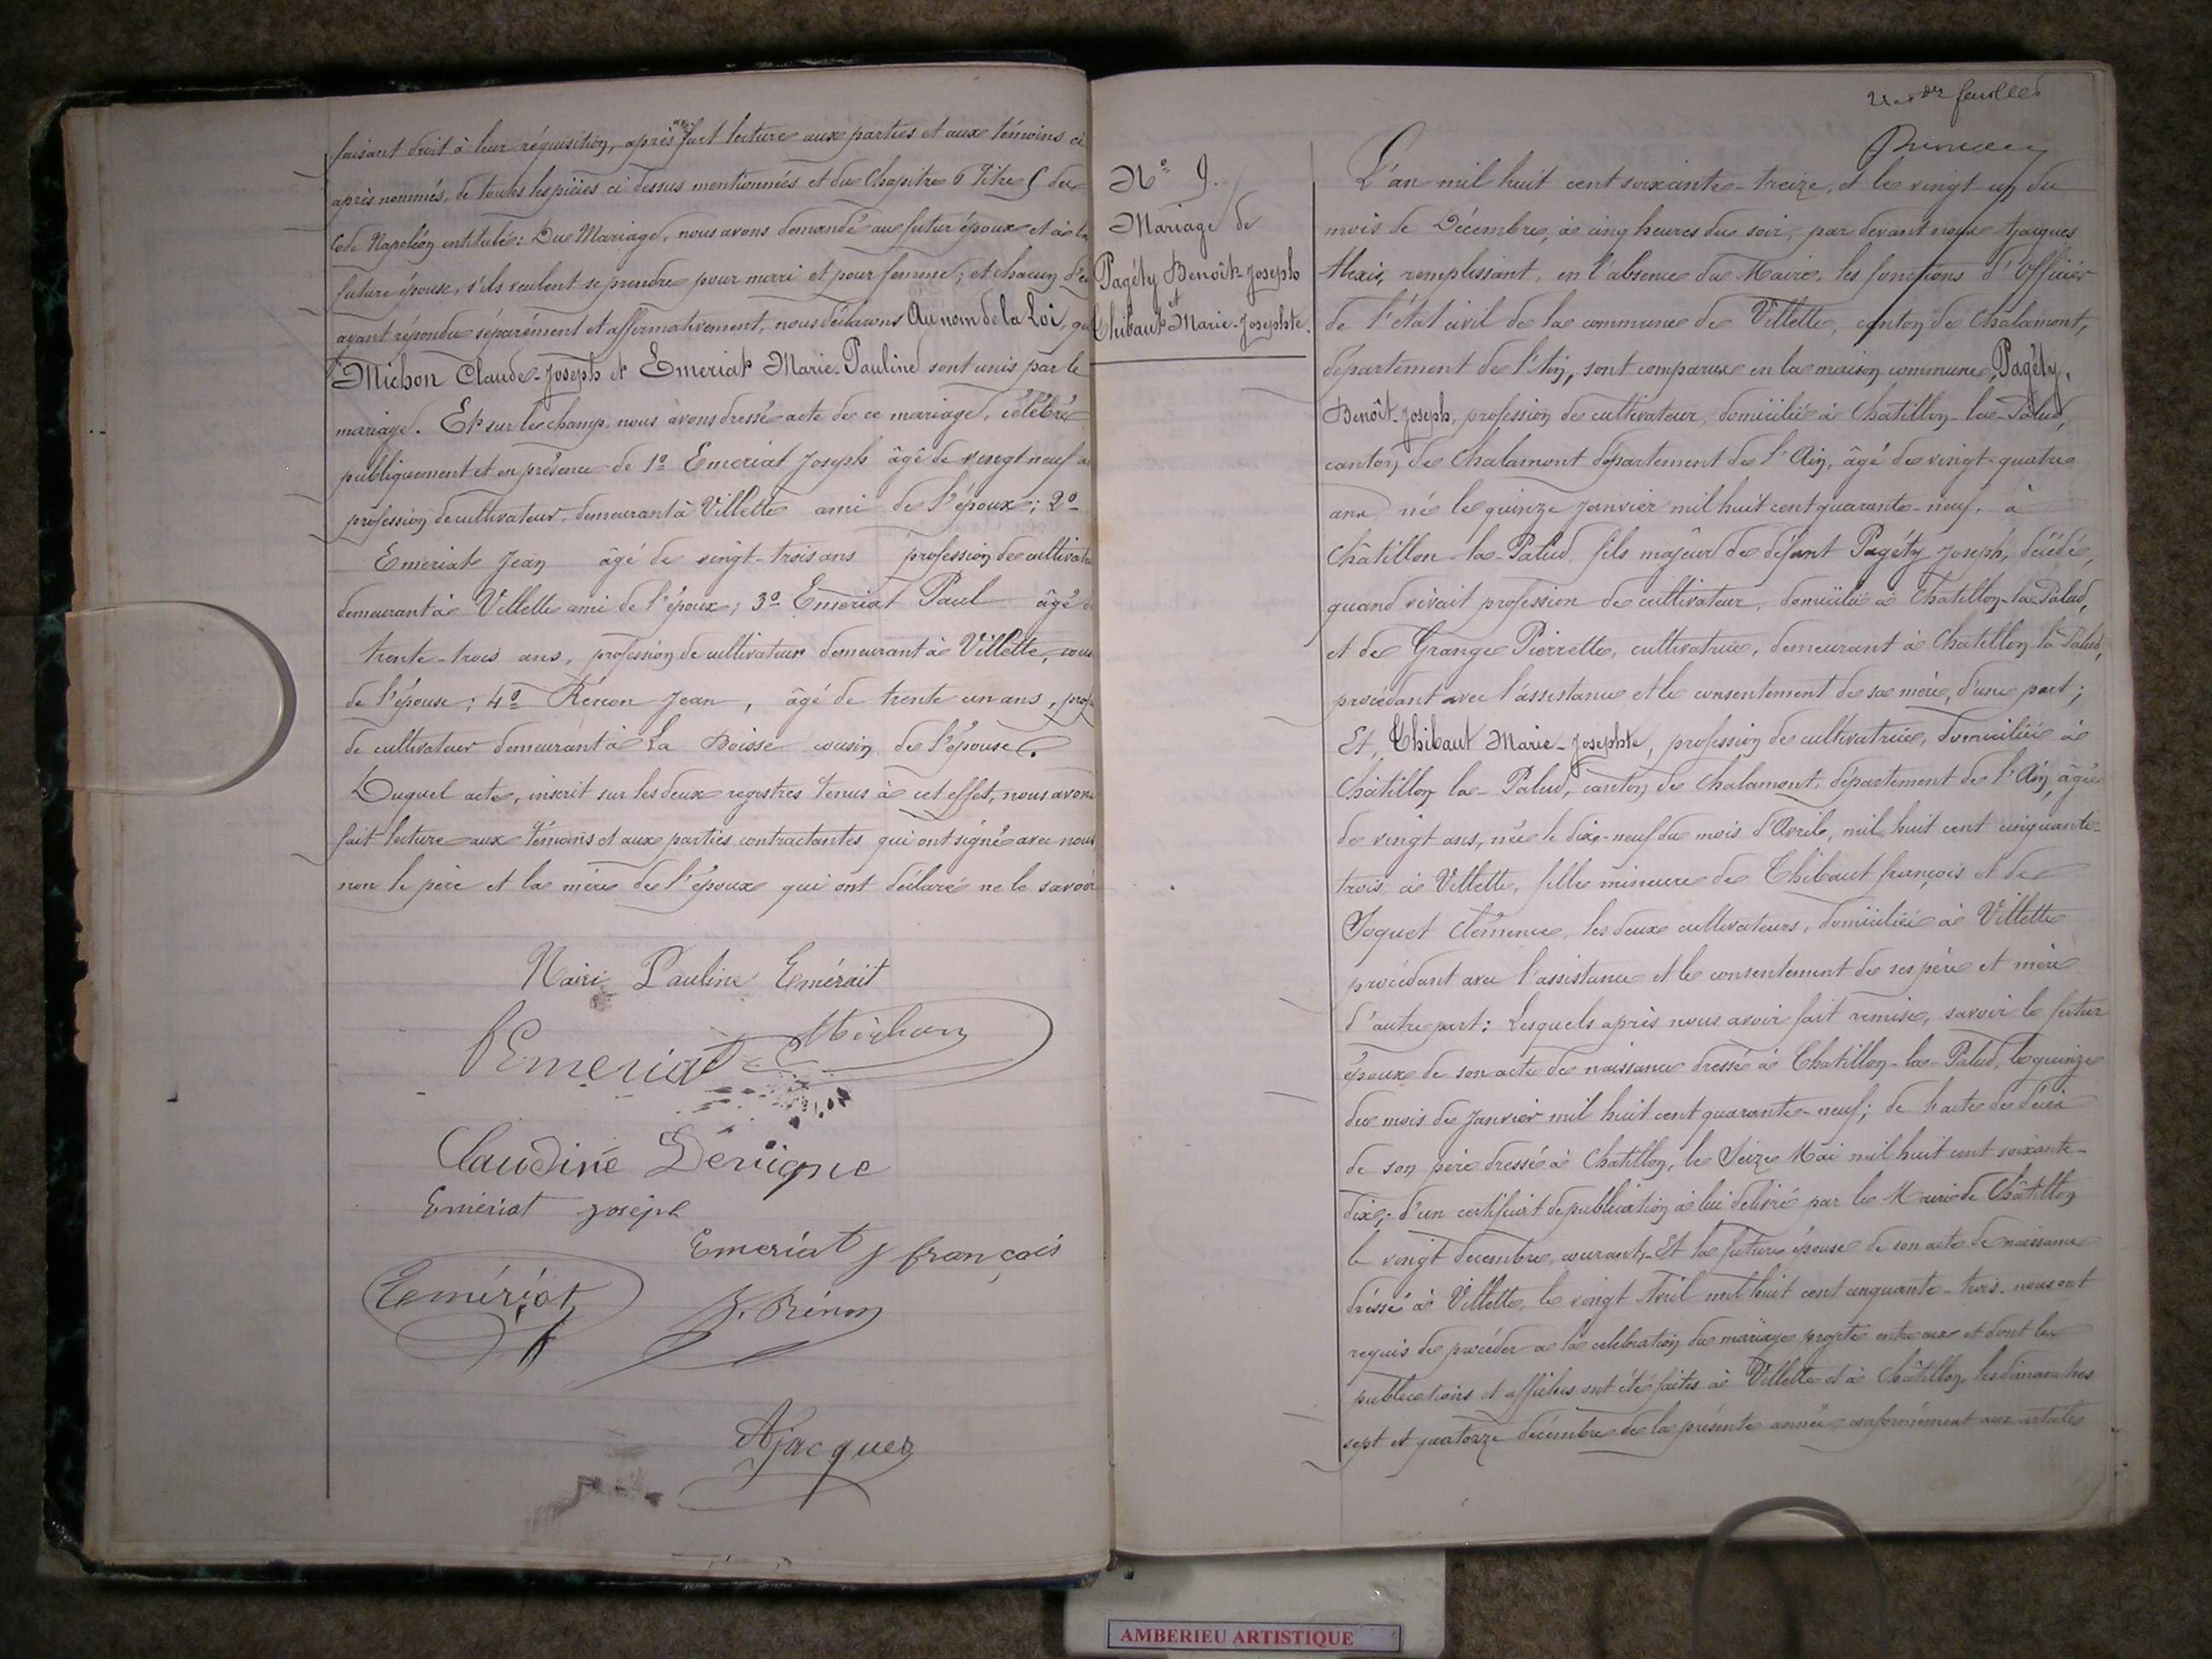 faisant droit à leur réquisition, après avoir fait lecture aux parties et aux témoins ci
après nommés, de toutes les pièces ci dessus mentionnées et du Chapitre 6 Titre 5 du
Code Napoléon intitulé: Du Mariage, nous avons demandé au futur époux et à la
future épouse, s'ils veulent se prendre pour mari et pour femme; et chacun d'eu
ayant répondu séparément et affirmativement, nous déclarons Au nom de la Loi, que
Michon Claude-Joseph et Emeriat Marie-Pauline sont unis par le
mariage. Et sur le champ, nous avons dressé acte de ce mariage, célébré
publiquement et en présence de 1º Emeriat Joseph âgé de vingt neuf an
profession de cultivateur, demeurant à Villette ami de l'époux; 2º
Emeriat Jean âgé de vingt-trois ans profession de cultivate
demeurant à Villette ami de l'époux; 3º Emeriat Paul âgé d
trente-trois ans, profession de cultivateur demeurant à Villette, cous
de l'épouse; 4º Rénon Jean, âgé de trente un ans, prof
de cultivateur demeurant à La Boisse cousin de l'épouse.
Duquel acte, inscrit sur les deux registres tenus à cet effet, nous avons
fait lecture aux témoins et aux parties contractantes qui ont signé avec nous
non le père et la mère de l'époux qui ont déclaré ne le savoir
Marie Pauline Emérait
Emeriat Michon
Claudine
Emériat Joseph
Emeriat J françois
Emériat J. Rénon
A Jacques
feuillet
Nº 9.
Mariage de
Pagéty Benoît-Joseph
et
Thibaut Marie-Josephte.
L'an mil huit cent soixante-treize, et le vingt-un du
mois de Décembre, à cinq heures du soir, par devant nous Jacques
Alexis, remplissant, en l'absence du Maire, les fonctions d'Officier
de l'état civil de la commune de Villette, canton de Chalamont,
département de l'Ain, sont comparus en la maison commune, Pagéty,
Benoît-Joseph, profession de cultivateur, domicilié à Chatillon-la-Palud,
canton de Chalamont département de l'Ain, âgé de vingt-quatre
ans né le quinze Janvier mil huit cent quarante-neuf, à
Châtillon-la-Palud, fils majeur de défunt Pagéty Joseph, décédé,
quand vivait profession de cultivateur, domicilié à Chatillon-la-Palud,
et de Grange Pierrette, cultivatrice, demeurant à Chatillon-la-Palud,
procédant avec l'assistance et le consentement de sa mère, d'une part;
Et, Thibaut Marie-Josephte, profession de cultivatrice, domiciliée à
Châtillon la-Palud, canton de Chalamont, département de l'Ain, âgée
de vingt ans, née le dix-neuf du mois d'Avril, mil huit cent cinquante-
trois à Villette, fille mineure de Thibaut françois et de
Joquet Clémence, les deux cultivateurs, domicilié à Villette
procédant avec l'assistance et le consentement de ses père et mère
d'autre part: Lesquels après nous avoir fait remise, savoir le futur
époux de son acte de naissance dressé à Chatillon-la-Palud, le quinze
du mois de Janvier mil huit cent quarante-neuf; de l'acte de décès
de son père dressé à Chatillon, le Seize Mai mil huit cent soixante-
dix; d'un certificat de publication à lui délivré par le Maire de Châtillon
le vingt décembre courant,- Et la future épouse de son acte de naissance
dressé à Villette, le vingt Avril mil huit cent cinquante-trois. nous ont
requis de procéder à la célébration du mariage projeté entre eux et dont les
publications et affiches ont été faites à Villette et à Châtillon, les dimanches
sept et quatorze décembre de la présente année conformément aux articles
AMBERIEU ARTISTIQUE